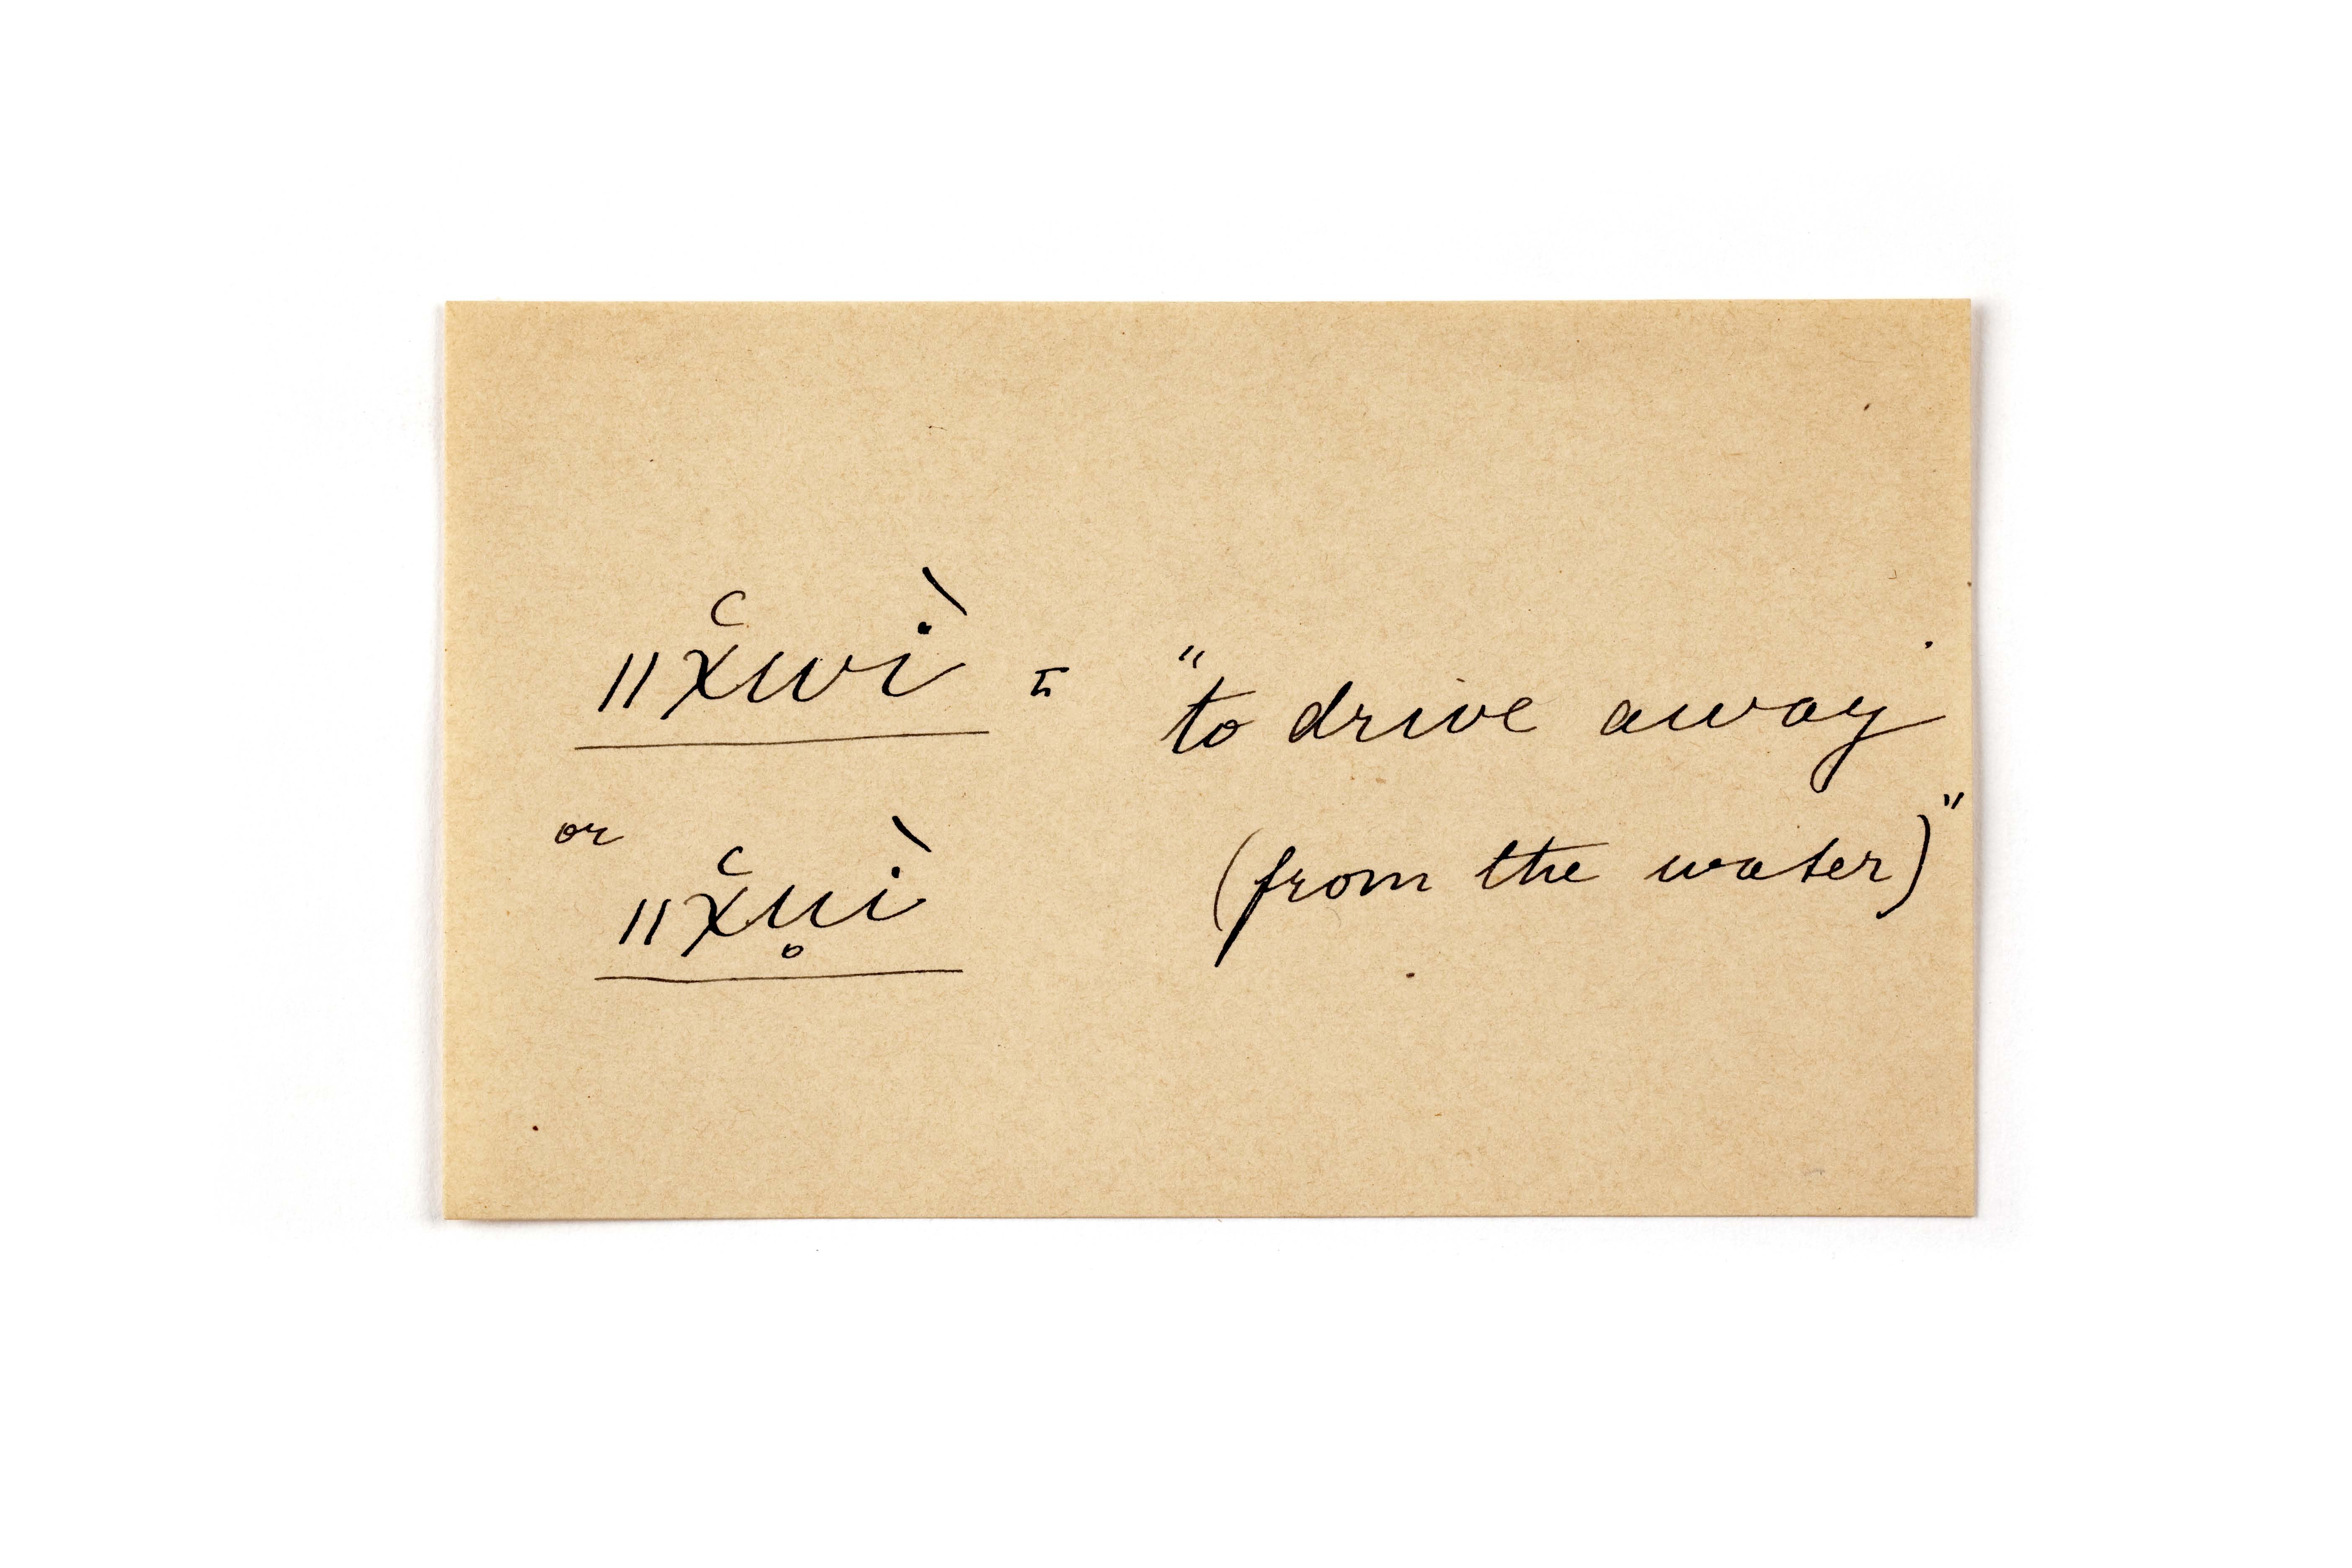 ǁx̌wı̇̀ = "to drive away
or
ǁx̌u̥ı̇̀ (from the water)"